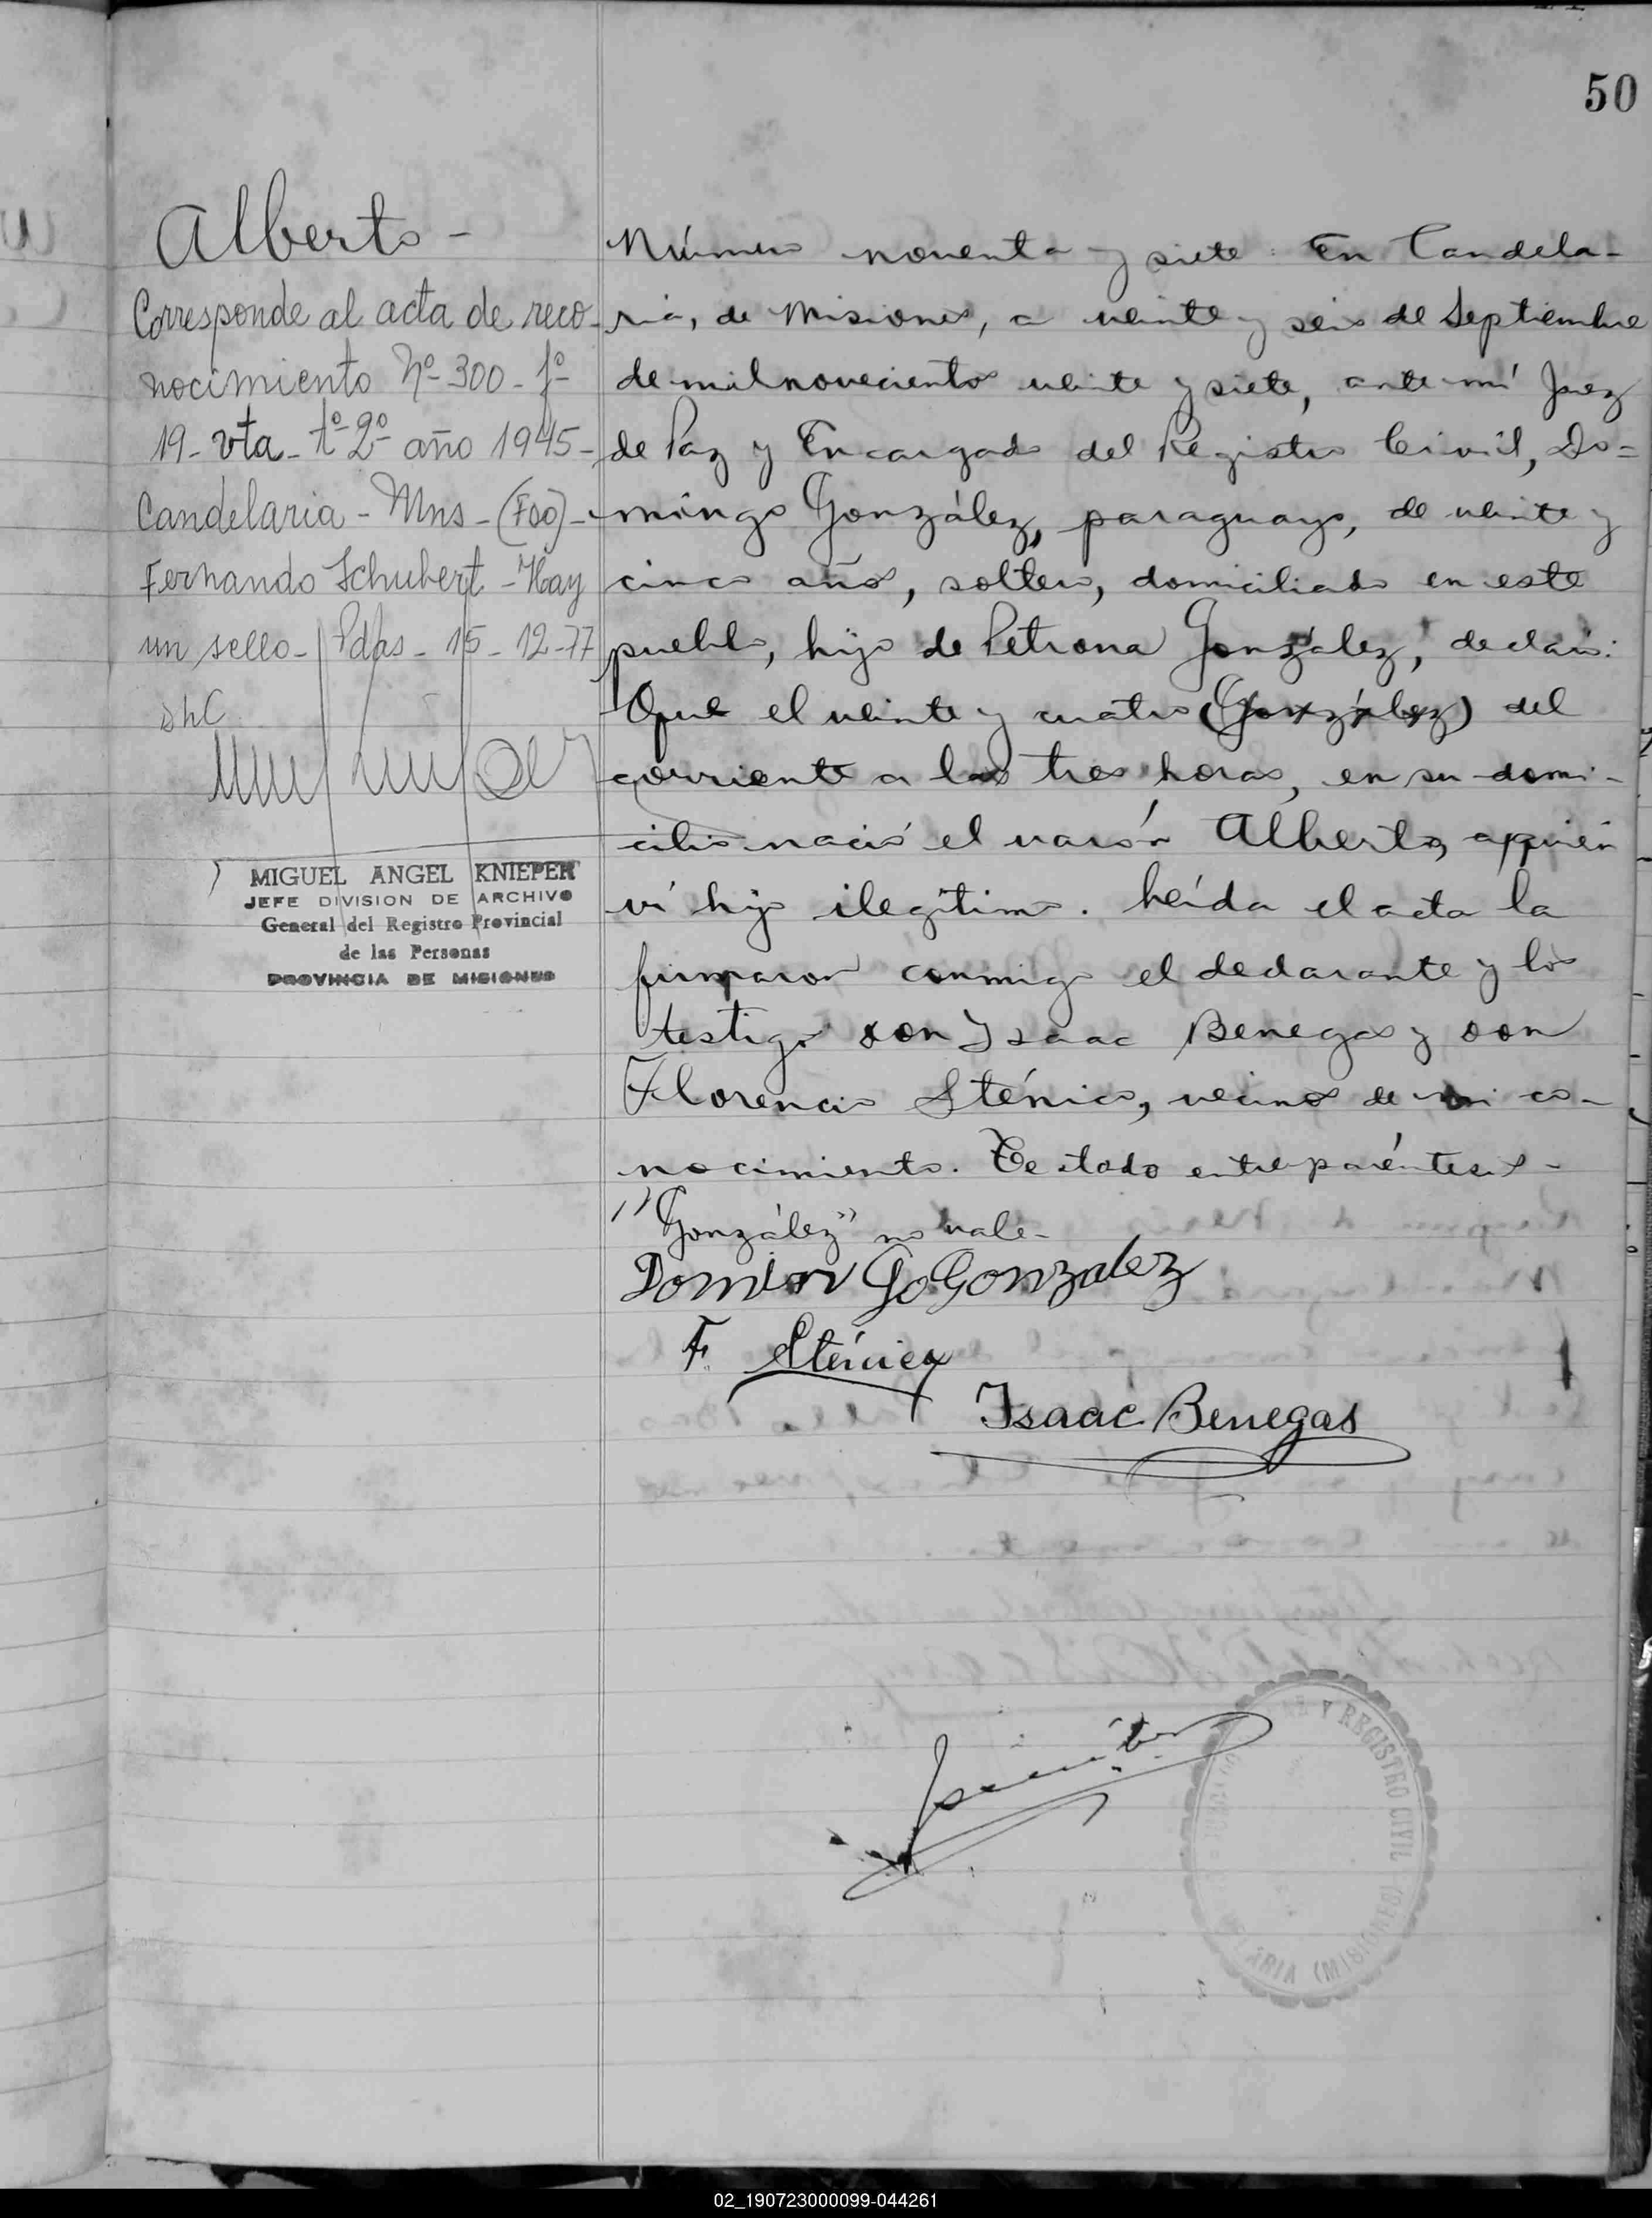 50
Alberto -
Corresponde al acta de reco-
nocimiento Nº 300 - fº
19 - vta - tº 2º año 1945 -
Candelaria - Mns - (Fdo) -
Fernando Schubert - Hay
un sello - Pdas - 15 - 12 - 77
MIGUEL ANGEL KNIEPER
JEFE DIVISION DE ARCHIVO
General del Registro Provincial
de las Personas
PROVINCIA DE MISIONES
Número noventa y siete. En Candela-
ria, de Misiones, a veinte y seis de Septiembre
de mil novecientos veinte y siete, ante mí Juez
de Paz y Encargado del Registro Civil, Do=
mingo González, paraguayo, de veinte y
cinco años, soltero, domiciliado en este
pueblo, hijo de Petrona González, declaró:
Que el veinte y cuatro (González) del
corriente a las tres horas, en su domi-
cilio nació el varón Alberto, a quien
ví hijo ilegítimo. Leída el acta la
firmaron conmigo el declarante y los
testigos don Isaac Benegas y don
Florencio Sténico, vecinos de mi co-
nocimiento. Testado entre paréntesis -
"González" no vale -
Domin Go Gonzalez
F. Sténico
Isaac Benegas
Y REGISTRO CIVIL
(MISIONES)
02_190723000099-044261